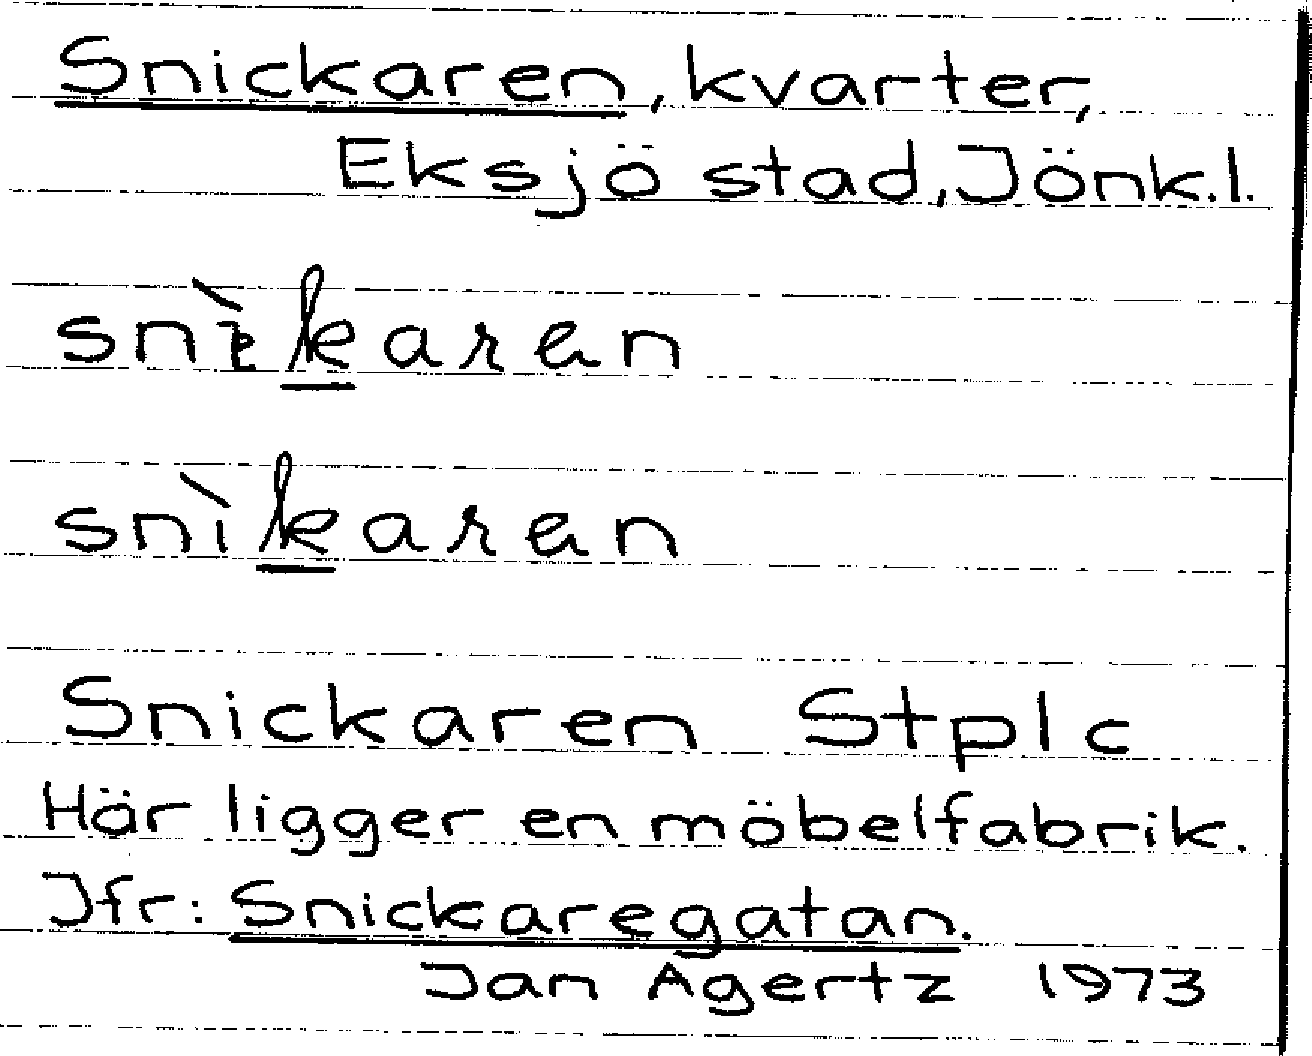 Snickaren, kvarter,
Eksjö stad, Jönk.l.
snìkaren
snìkaren
Snickaren Stplc
Här ligger en möbelfabrik.
Jfr: Snickaregatan.
Jan Agertz 1973